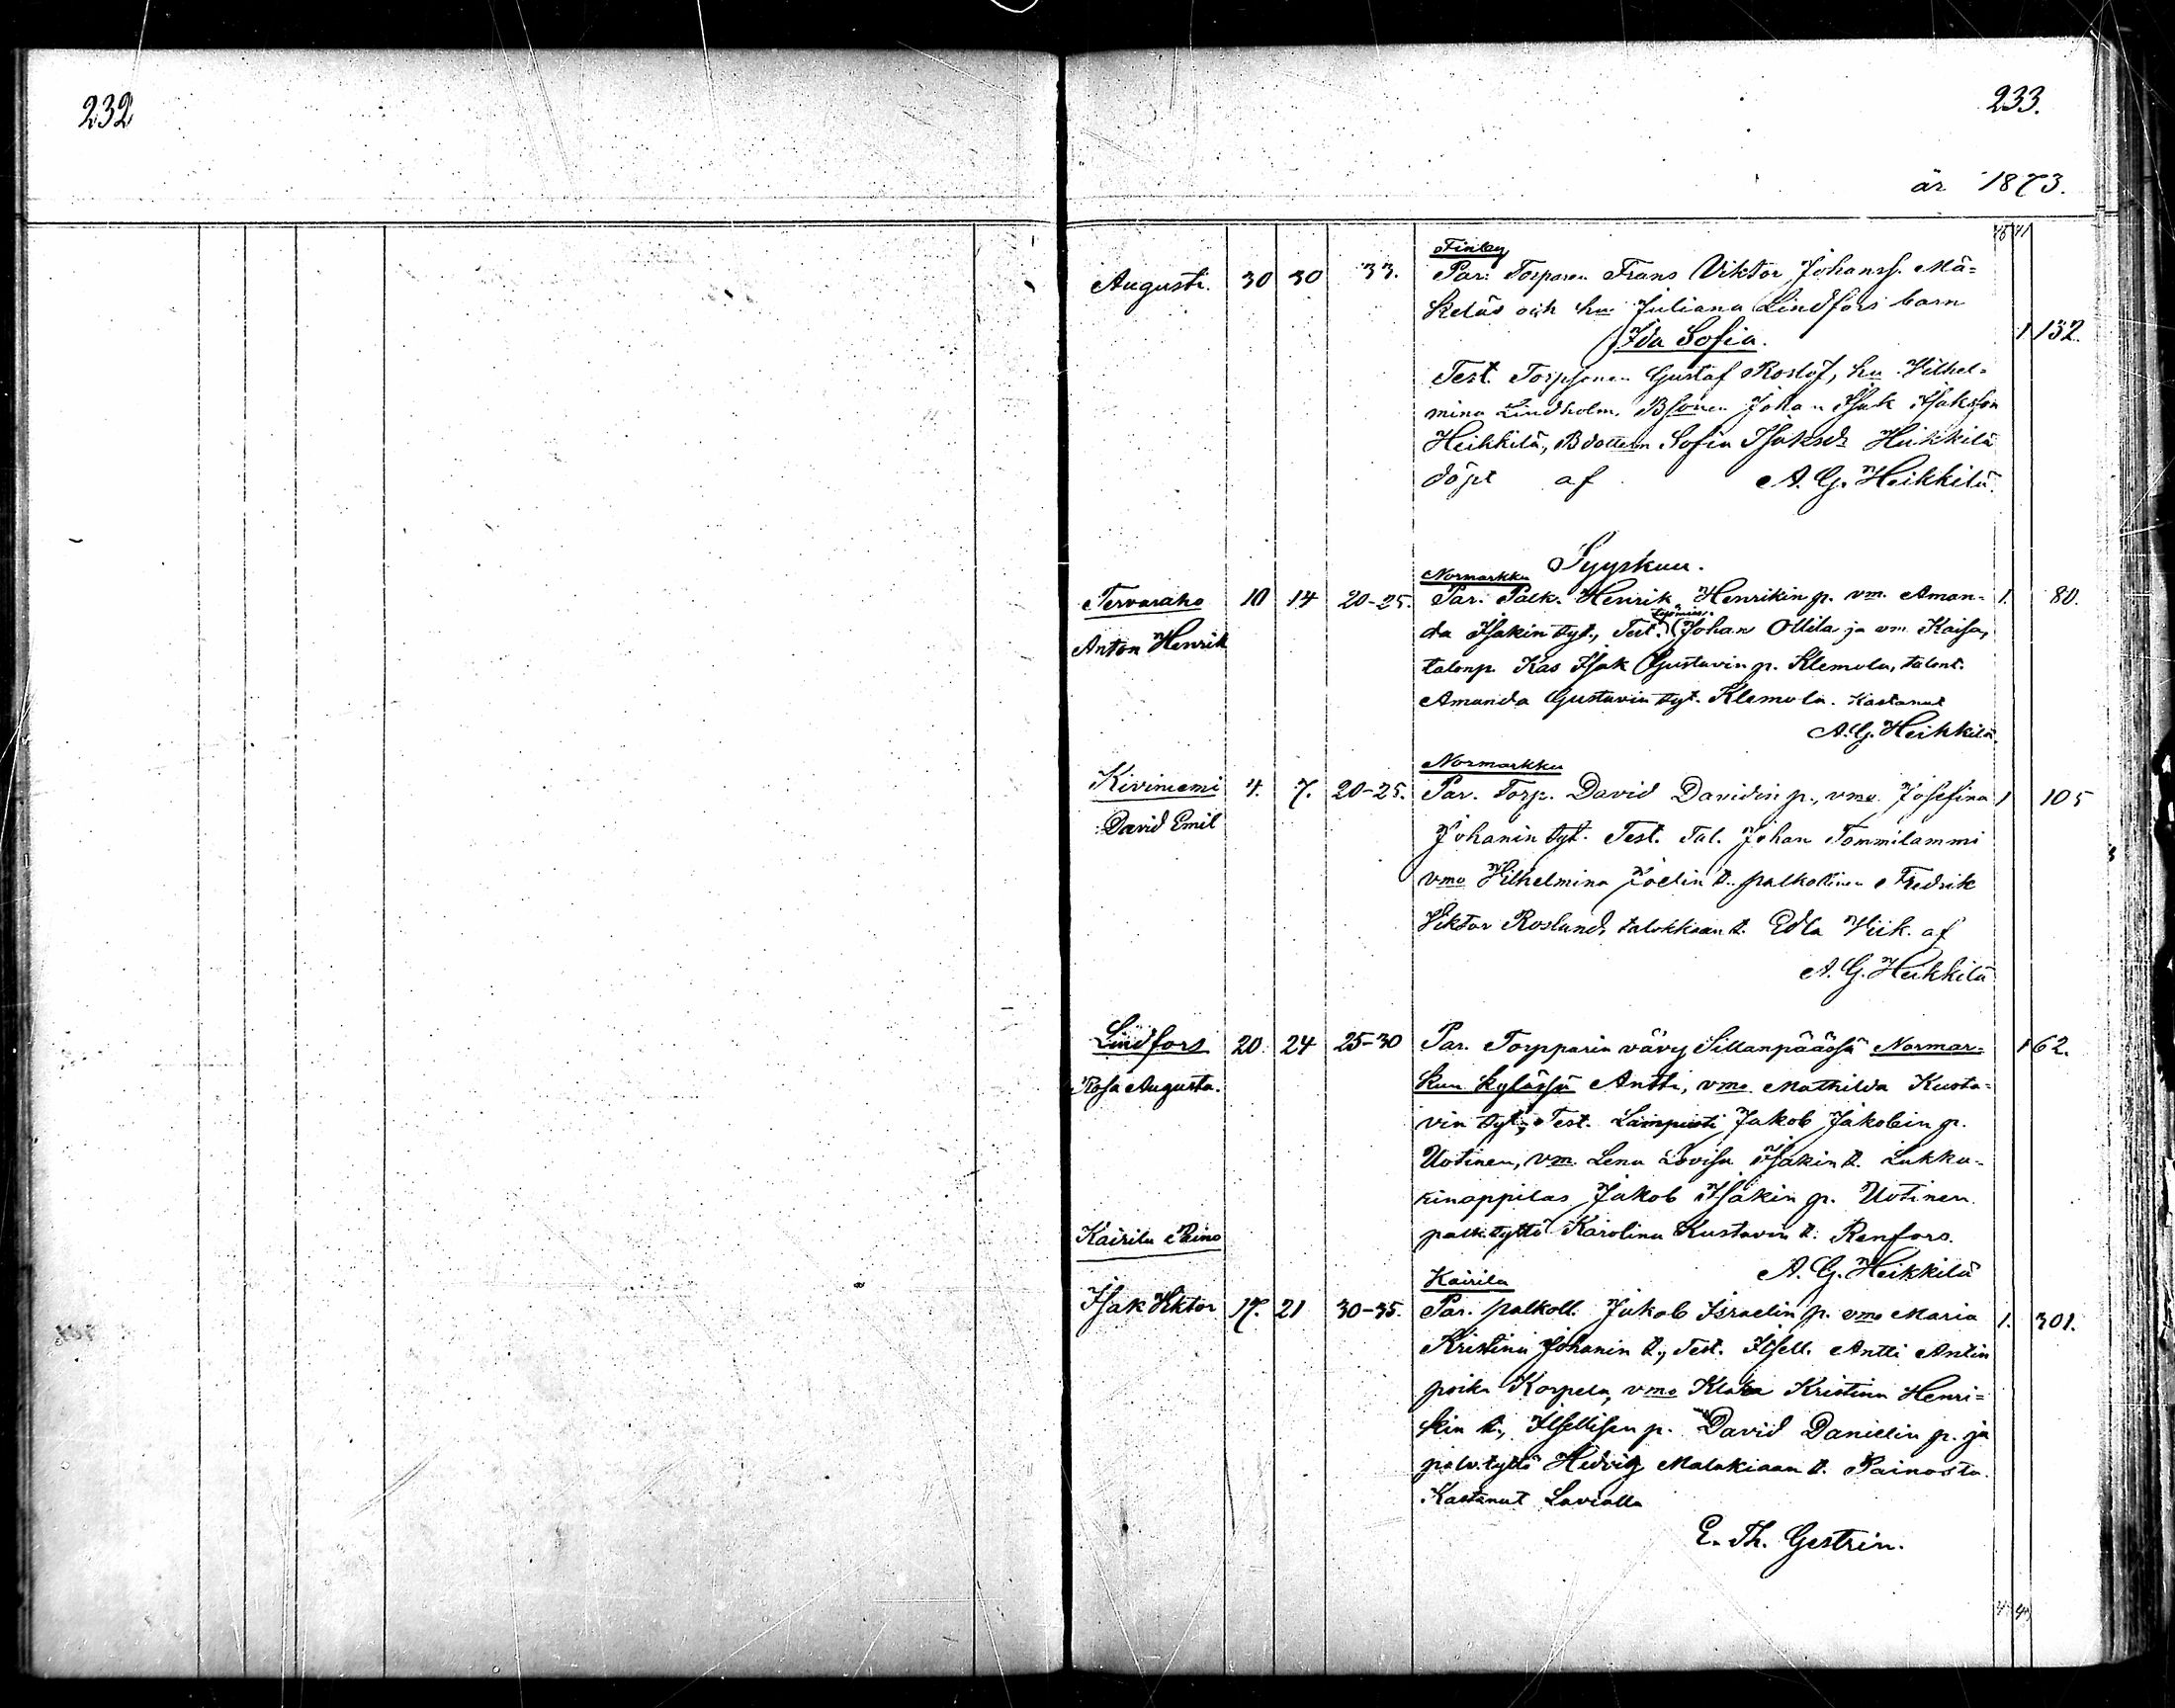 232
233.
år 1873.
48 41
Finby
Augusti. 30 30 33. Par: Torparen Frans Viktor Johanss. Mä=
keläs och hu. Juliana Lindfors barn
Ida Sofia. 1 132.
Test. Torpsonen Gustaf Roslöf, hu Vilhel-
mina Lindholm, Bsonen Johan Isak Isaksson
Heikkilä, Bdottern Sofia Isaksdr Heikkilä
döpt af A. G. Heikkilä.
Syyskuu.
Normarkku
Tervaraho 10 14 20-25. Par. Palk. Henrik Henrikin p. vm. Aman- 1. 80.
työmies
da Isakin tyt., Test. Johan Ollila ja vm. Kaisa,
Anton Henrik
talonp. Kas Isak Gustavin p. Klemola, talont.
Amanda Gustavin tyt. Klemola. Kastanut
A. G. Heikkilä.
Normarkku
Kiviniemi 4. 7. 20-25. Par. Torp. David Davidin p., vmo. Josefina 1 105
David Emil
Johanin tyt. Test. Tal. Johan Tommilammi
vmo Vilhelmina Joelin t. palkollinen Fredrik
Viktor Roslund, talokkaan t. Edla Viik. af
A. G. Heikkilä
Lindfors 20. 24 25-30 Par. Torpparin vävy Sillanpäässä Normar- 1 62.
Rosa Augusta.
kun kylässä Antti, vmo. Mathilda Kusta-
vin tyt., Test. Lampuoti Jakob Jakobin p.
Uotinen, vm. Lena Lovisa Isakin t. Lukka-
rinoppilas Jakob Isakin p. Uotinen
palk.tyttö Karolina Kustavin t. Renfors.
Kairila Paino
A. G. Heikkilä
Kairila
Isak Viktor 17. 21 30-35. Par. palkoll. Jakob Israelin p. vmo Maria 1. 301.
Kristina Johanin t., Test. Itsell. Antti Antin
poika Korpela, vmo Klara Kristina Henri=
kin t., Itsellisen p. David Danielin p. ja
palv.tyttö Hedvig Malakiaan t. Painosta.
Kastanut Lavialla
E. Th. Gestrin.